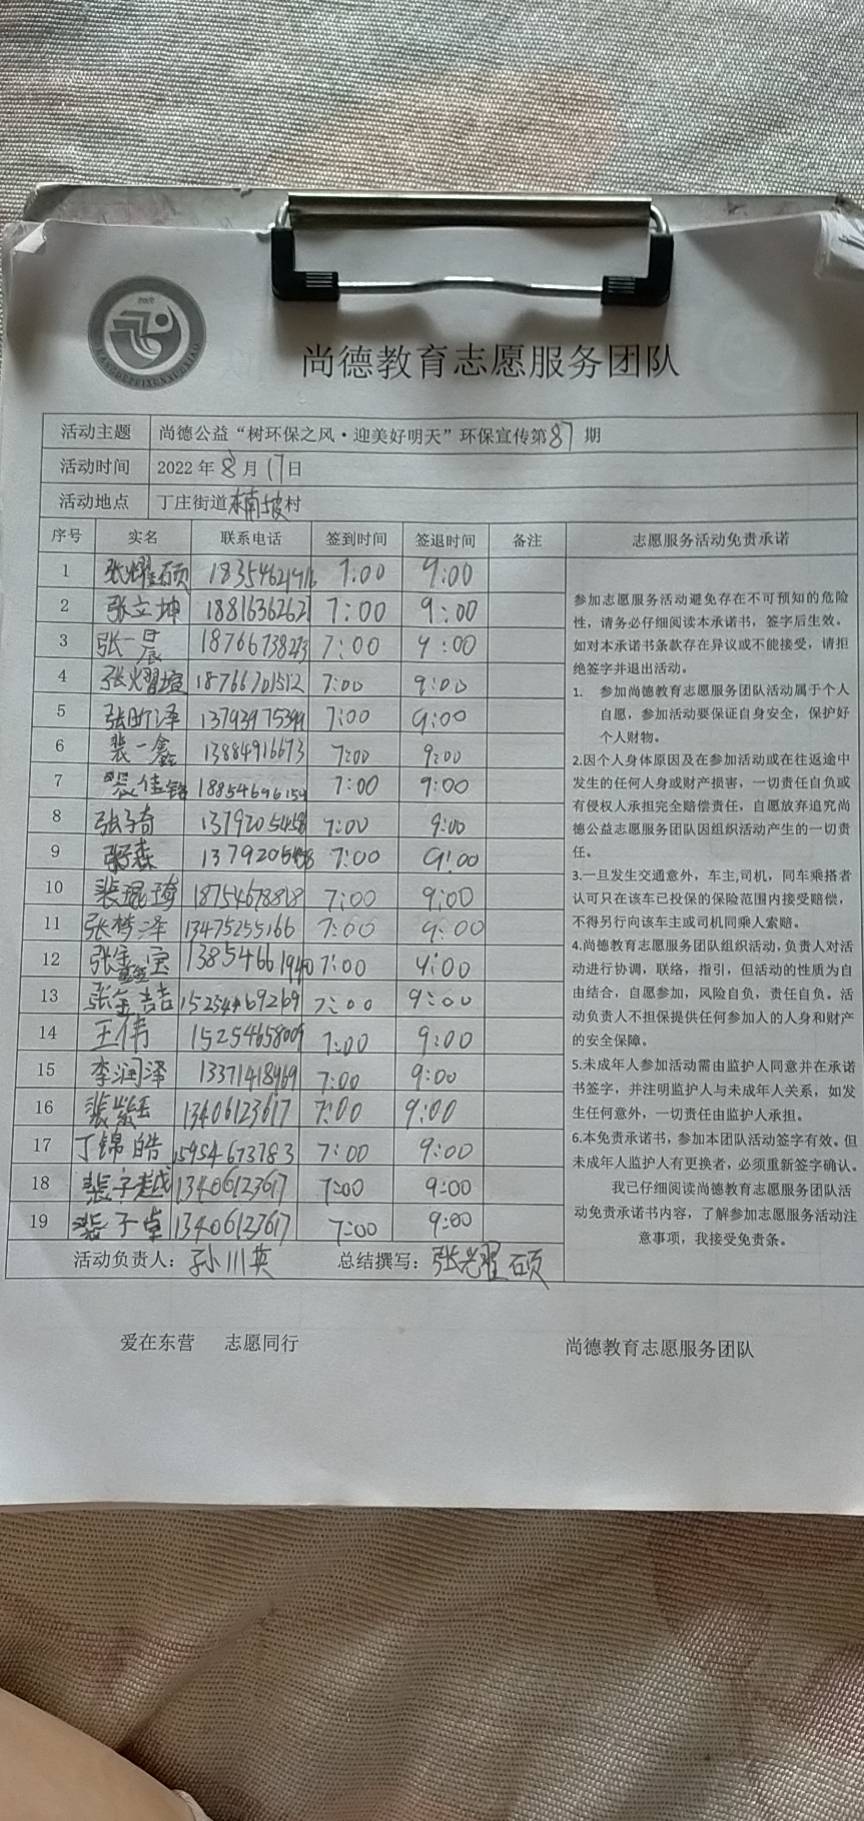 尚德教育志愿服务团队
活动主题 尚德公益“树环保之风·迎美好明天”环保宣传第87期
活动时间 2022年8月17日
活动地点 丁庄街道 村
序号 实名 联系电话 签到时间 签退时间 备注 志愿服务活动免责承诺
1 张耀硕 7:00 9:00
2 张立坤 7:00 9:00
3 张一晨 18766738273 7:00 9:00
4 张耀煊 18766701512 7:00 9:00
5 7:00 9:00
6 裴一鑫 13884916673 7:00 9:00
7 7:00 9:00
8 张子奇 13792054458 7:00 9:00
9 7:00 9:00
10 裴琨琦 18754678818 7:00 9:00
11 张梦泽 13475255166 7:00 9:00
12 7:00 9:00
13 7:00 9:00
14 王伟 15254658009 7:00 9:00
15 李润泽 13371418969 7:00 9:00
16 裴紫玉 13406123617 7:00 9:00
17 丁锦皓 15954673783 7:00 9:00
18 裴子越 13406123617 7:00 9:00
19 裴子卓 13406123617 7:00 9:00
活动负责人：孙川英 总结撰写：张耀硕
参加志愿服务活动避免存在不可预知的危险
性，请务必仔细阅读本承诺书，签字后生效。
如对本承诺书条款存在异议或不能接受，请拒
绝签字并退出活动。
1. 参加尚德教育志愿服务团队活动属于个人
自愿，参加活动要保证自身安全，保护好
个人财物。
2.因个人身体原因及在参加活动或在往返途中
发生的任何人身或财产损害，一切责任自负或
有侵权人承担完全赔偿责任，自愿放弃追究尚
德公益志愿服务团队因组织活动产生的一切责
任。
3.一旦发生交通意外，车主,司机，同车乘搭者
认可只在该车已投保的保险范围内接受赔偿，
不得另行向该车主或司机同乘人索赔。
4.尚德教育志愿服务团队组织活动，负责人对活
动进行协调，联络，指引，但活动的性质为自
由结合，自愿参加，风险自负，责任自负。活
动负责人不担保提供任何参加人的人身和财产
的安全保障。
5.未成年人参加活动需由监护人同意并在承诺
书签字，并注明监护人与未成年人关系，如发
生任何意外，一切责任由监护人承担。
6.本免责承诺书，参加本团队活动签字有效。但
未成年人监护人有更换者，必须重新签字确认。
我已仔细阅读尚德教育志愿服务团队活
动免责承诺书内容，了解参加志愿服务活动注
意事项，我接受免责条。
爱在东营 志愿同行 尚德教育志愿服务团队